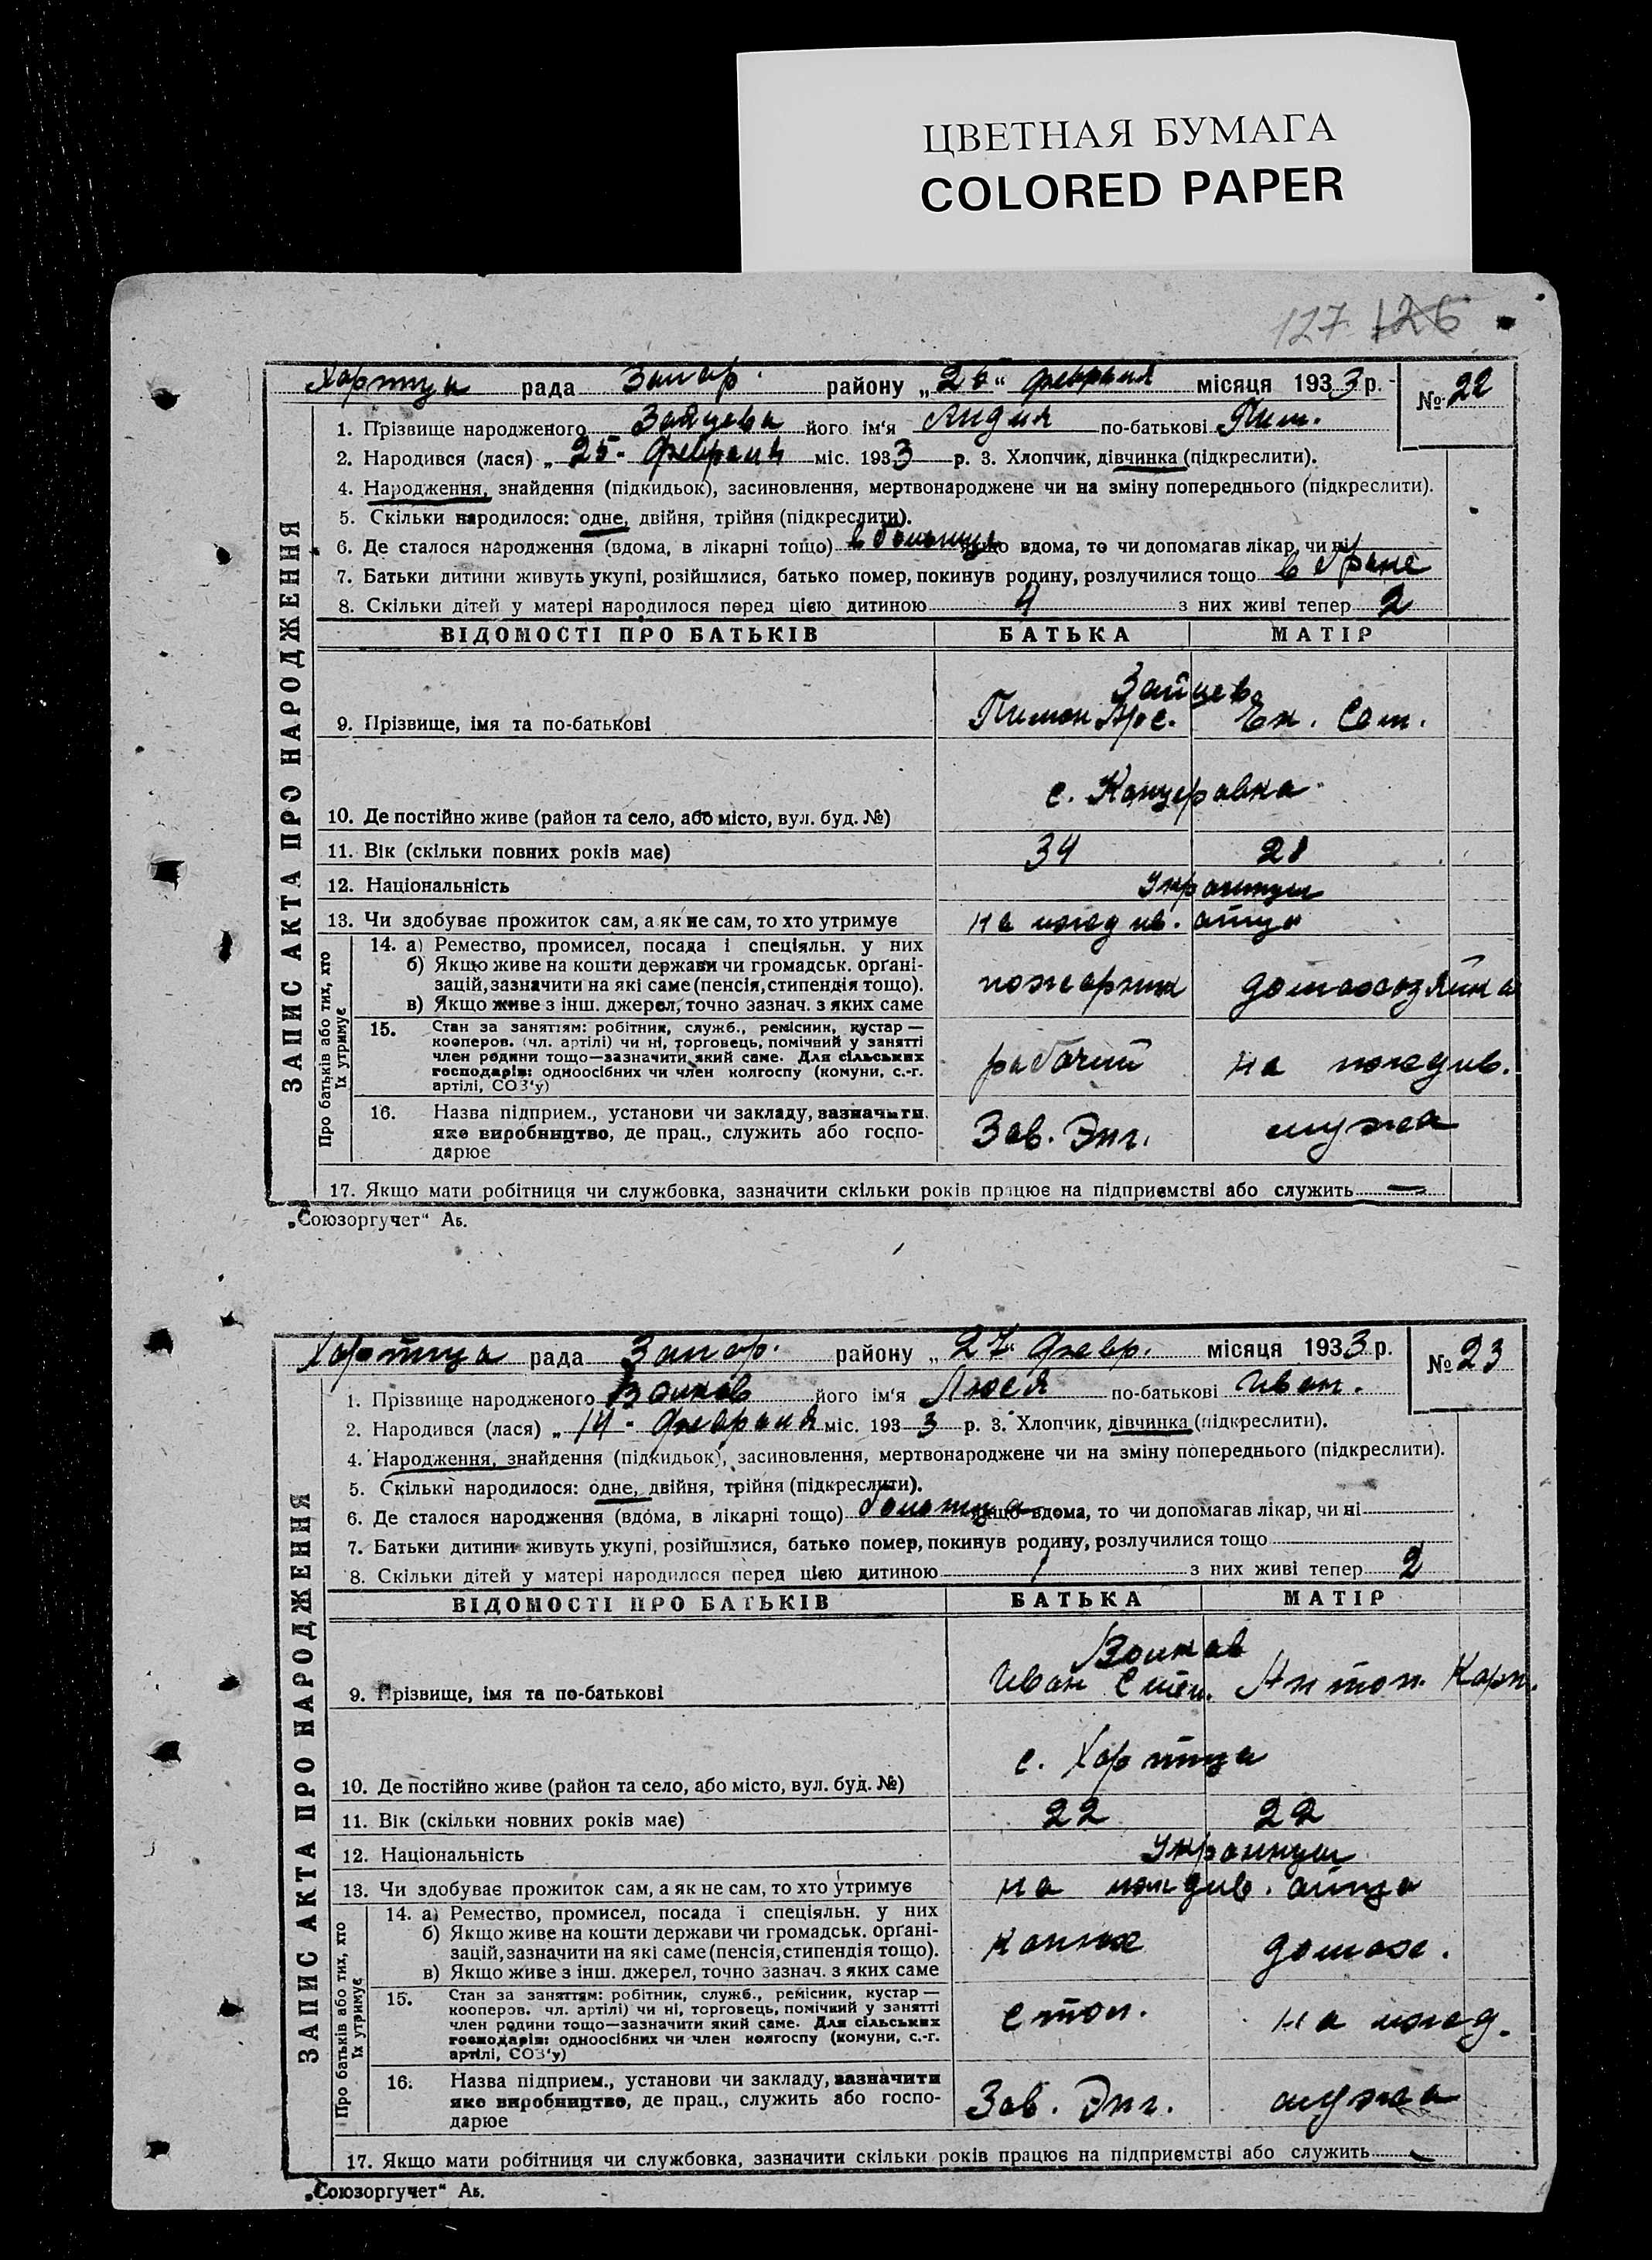 ЦВЕТНАЯ БУМАГА
COLORED PAPER
127 126
Хортица рада Запор. району „26“ февраля місяця 1933 р. № 22
ЗАПИС АКТА ПРО НАРОДЖЕННЯ
1. Прізвище народженого Зайцева його ім‘я Лидия по-батькові Пим.
2. Народився (лася) „25 - февраля міс. 1933 р. 3. Хлопчик, дівчинка (підкреслити).
4. Народження, знайдення (підкидьок), засиновлення, мертвонароджене чи на зміну попереднього (підкреслити).
5. Скільки народилося: одне, двійня, трійня (підкреслити).
6. Де сталося народження (вдома, в лікарні тощо) в больнице якщо вдома, то чи допомагав лікар, чи ні
7. Батьки дитини живуть укупі, розійшлися, батько помер, покинув родину, розлучилися тощо в браке
8. Скільки дітей у матері народилося перед цією дитиною 4 з них живі тепер 2
ВІДОМОСТІ ПРО БАТЬКІВ БАТЬКА МАТІР
Зайцев
9. Прізвище, імя та по-батькові Пимон Арс. Ек. Сем.
с. Канцеровка
10. Де постійно живе (район та село, або місто, вул. буд. №)
11. Вік (скільки повних років має) 34 28
12. Національність Украинцы
13. Чи здобуває прожиток сам, а як не сам, то хто утримує на иждив. отца
Про батьків або тих, хто їх утримує
14. а) Ремество, промисел, посада і спеціяльн. у них
б) Якщо живе на кошти держави чи громадськ. орґані-
зацій, зазначити на які саме (пенсія, стипендія тощо). пожарник домохозяйка
в) Якщо живе з інш. джерел, точно зазнач. з яких саме
15. Стан за заняттям: робітник, служб., ремісник, кустар —
кооперов. (чл. артілі) чи ні, торговець, помічний у занятті
член родини тощо—зазначити який саме. Для сільських рабочий на иждив.
господарів: одноосібних чи член колгоспу (комуни, с.-г.
артілі, СОЗ‘у)
16. Назва підприєм., установи чи закладу, зазначити
яке виробництво, де прац., служить або госпо- Зав. Энг. мужа
дарює
17. Якщо мати робітниця чи службовка, зазначити скільки років працює на підприємстві або служить —
„Союзоргучет“ Аб.
Хортица рада Запор. району „27“ февр. місяця 1933 р. № 23
ЗАПИС АКТА ПРО НАРОДЖЕННЯ
1. Прізвище народженого його ім‘я Люся по-батькові Иван.
2. Народився (лася) „14 - февраля міс. 1933 р. 3. Хлопчик, дівчинка (підкреслити).
4. Народження, знайдення (підкидьок), засиновлення, мертвонароджене чи на зміну попереднього (підкреслити).
5. Скільки народилося: одне, двійня, трійня (підкреслити).
6. Де сталося народження (вдома, в лікарні тощо) больница якщо вдома, то чи допомагав лікар, чи ні
7. Батьки дитини живуть укупі, розійшлися, батько помер, покинув родину, розлучилися тощо
8. Скільки дітей у матері народилося перед цією дитиною 1 з них живі тепер 2
ВІДОМОСТІ ПРО БАТЬКІВ БАТЬКА МАТІР
9. Прізвище, імя та по-батькові Иван Степ. Антон. Карп.
с. Хортица
10. Де постійно живе (район та село, або місто, вул. буд. №)
11. Вік (скільки повних років має) 22 22
12. Національність Украинцы
13. Чи здобуває прожиток сам, а як не сам, то хто утримує на иждив. отца
Про батьків або тих, хто їх утримує
14. а) Ремество, промисел, посада і спеціяльн. у них
б) Якщо живе на кошти держави чи громадськ. орґані-
зацій, зазначити на які саме (пенсія, стипендія тощо). домохоз.
в) Якщо живе з інш. джерел, точно зазнач. з яких саме
15. Стан за заняттям: робітник, служб., ремісник, кустар —
кооперов. чл. артілі) чи ні, торговець, помічний у занятті
член родини тощо—зазначити який саме. Для сільських на ижд.
господарів: одноосібних чи член колгоспу (комуни, с.-г.
артілі, СОЗ‘у)
16. Назва підприєм., установи чи закладу, зазначити
яке виробництво, де прац., служить або госпо- Зав. Энг. мужа
дарює
17. Якщо мати робітниця чи службовка, зазначити скільки років працює на підприємстві або служить
„Союзоргучет“ Аб.